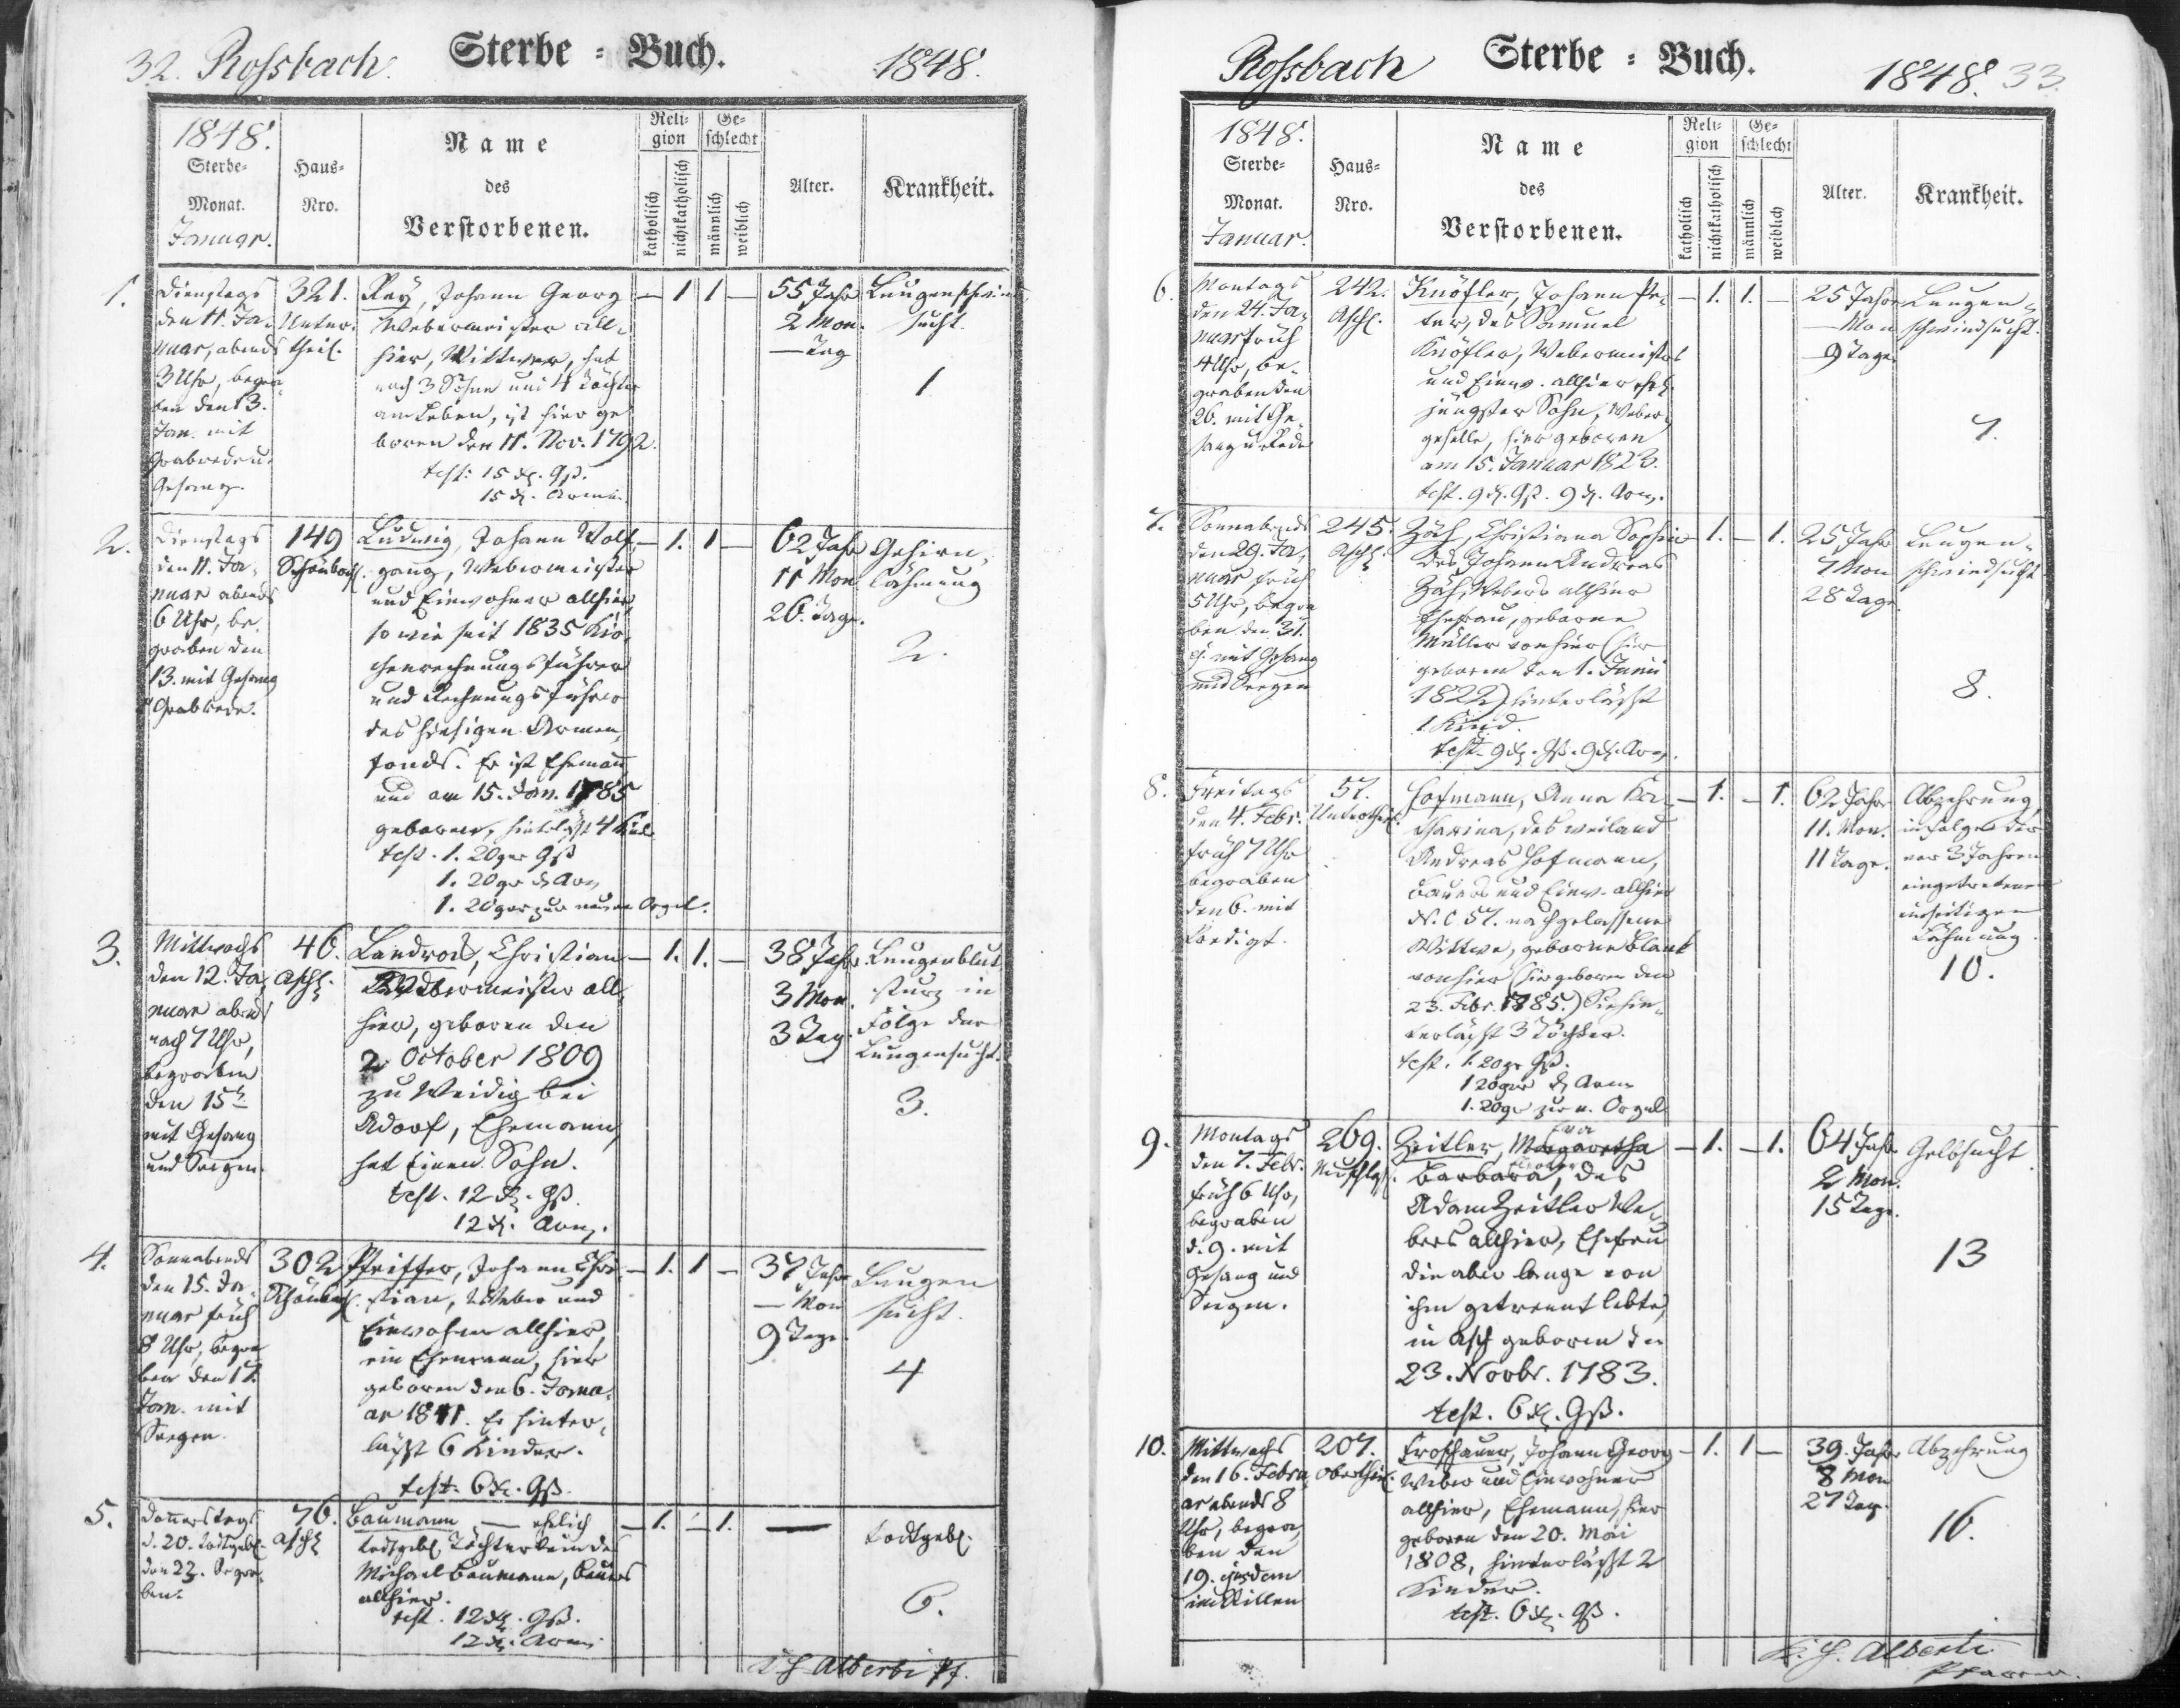 32. Rossbach. Sterbe = Buch. 1848.
1848.
Sterbe-
Monat.
Januar.
Haus-
Nro.
Name
des
Verstorbenen.
Reli-
gion
katholisch
nichtkatholisch
Ge-
schlecht
männlich
weiblich
Alter.
Krankheit.
1.
Dienstags
den 11. Ja-
nuar, abends
3 Uhr, begra-
ben den 13.
Jan. mit
Grabrede u.
Gesang.
321.
Unter-
theil.
Johann Georg
Webermeister all-
hier, Wittwer, hat
noch 3 Söhne und 4 Töchter
am Leben, ist hier ge-
boren den 11. Nov. 1792.
— 1 1 —
55 Jahr
2 Mon.
— Tag
Lungenschwind-
sucht.
1
2.
Dienstags
den 11. Ja-
nuar abends
6 Uhr, be-
graben den
13. mit Gesang
u Grabrede.
149
Schönbach.
Ludwig, Johann Wolf-
gang, Webermeister
und Einwohner allhier,
so wie seit 1835 Kir-
chenrechnungsführer
und Rechnungsführer
des hiesigen Armen-
fonds. Er ist Ehemann
und am 15. Jan. 1785
geboren, hinterläßt 4 Kind.
1. 20 zur neuen Orgel.
— 1. 1 —
62 Jahr
11 Mon
26. Tage.
Gehirn-
lähmung
2.
3.
Mittwochs
den 12. Ja-
nuar abends
nach 7 Uhr,
begraben
den 15
mit Gesang
und Seegen.
46.
Landrock, Christian
Webermeister all-
hier, geboren den
2 October 1809
zu Weidig bei
Adorf, Ehemann,
hat Einen Sohn.
— 1. 1. —
38 Jahr
3 Mon.
3 Tag.
Lungenblut-
sturz in
Folge der
Lungensucht.
3.
4.
Sonnabends
den 15. Ja-
nuar früh
8 Uhr, begra-
ben den 17.
Jan. mit
Seegen.
302
Schönbach.
Pfeiffer, Johann Chri-
stian, Weber und
Einwohner allhier,
ein Ehemann, hier
geboren den 6. Janu-
ar 1811. Er hinter-
läßt 6 Kinder.
— 1. 1 —
37 Jahr
— Mon
9 Tage.
Lungen
sucht.
4
5.
Donnerstags
d. 20. todtgeb.
den 22. begra-
ben.
76.
Baumann — ehelich
todtgeb. Töchterlein des
Michael Baumann, Bauers
allhier.
— 1. — 1.
—
todtgeb.
6.
Alberti Pf.
Rossbach Sterbe = Buch. 1848. 33.
1848.
Sterbe-
Monat.
Januar.
Haus-
Nro.
Name
des
Verstorbenen.
Reli-
gion
katholisch
nichtkatholisch
Ge-
schlecht
männlich
weiblich
Alter.
Krankheit.
6.
Montags
den 24. Ja-
nuar früh
4 Uhr, be-
graben den
26. mit Ge-
sang u. Rede
242.
Knöfler, Johann Pe-
ter, des Samuel
Knöfler, Webermeisters
und Einw. allhier ehel.
jüngster Sohn, Weber-
geselle, hier geboren
am 15. Januar 1823.
— 1. 1. —
25 Jahr
— Mon
9 Tage
Lungen-
schwindsucht.
7.
7.
Sonnabends
den 29. Ja-
nuar früh
5 Uhr, begra
ben den 31.
mit Gesang
und Seegen
245.
Zäh, Christiana Sophia
des Johann Andreas
Zäh, Webers allhier
Ehefrau, geborne
Müller von hier (hier
geboren den 1. Juni
1822) hinterläßt
1 Kind.
— 1. — 1.
25 Jahr
7 Mon
28 Tage.
Lungen-
schwindsucht
8.
8.
Freitags
den 4. Febr.
früh 7 Uhr
begraben
den 6. mit
Predigt.
57.
Untertheil.
Hofmann, Anna Ka-
tharina, des weiland
Andreas Hofmann,
Bauers und Einw. allhier
N. C 57. nachgelassene
Wittwe, geborne Blank
von hier (hier geboren den
23. Febr. 1785.) Sie hin-
terläßt 3 Töchter.
1. 20 zur n. Orgel
— 1. — 1.
62 Jahr
11. Mon.
11 Tage.
Abzehrung,
in Folge der
vor 3 Jahren
eingetretenen
Lähmung.
10.
9.
Montags
den 7. Febr.
früh 6 Uhr,
begraben
d. 9. mit
Gesang und
Seegen.
269.
Zeitler, Margaretha
Eva
Barbara, des
Adam Zeitler We-
bers allhier, Ehefrau
die aber lange von
ihm getrennt lebte,
in Asch geboren den
23. Novbr. 1783.
— 1. — 1.
64 Jahr
2 Mon.
15 Tage.
Gelbsucht.
13
10.
Mittwochs
den 16. Febru-
ar abends 8
Uhr, begra-
ben den
19. ejusdem
im Stillen
207.
Obertheil.
Froschauer, Johann Georg
Weber und Einwohner
allhier, Ehemann, hier
geboren den 20. Mai
1808, hinterläßt 2
Kinder.
— 1. 1 —
39. Jahr
8 Mon
27 Tag.
Abzehrung
16.
Alberti
Pfarrer.